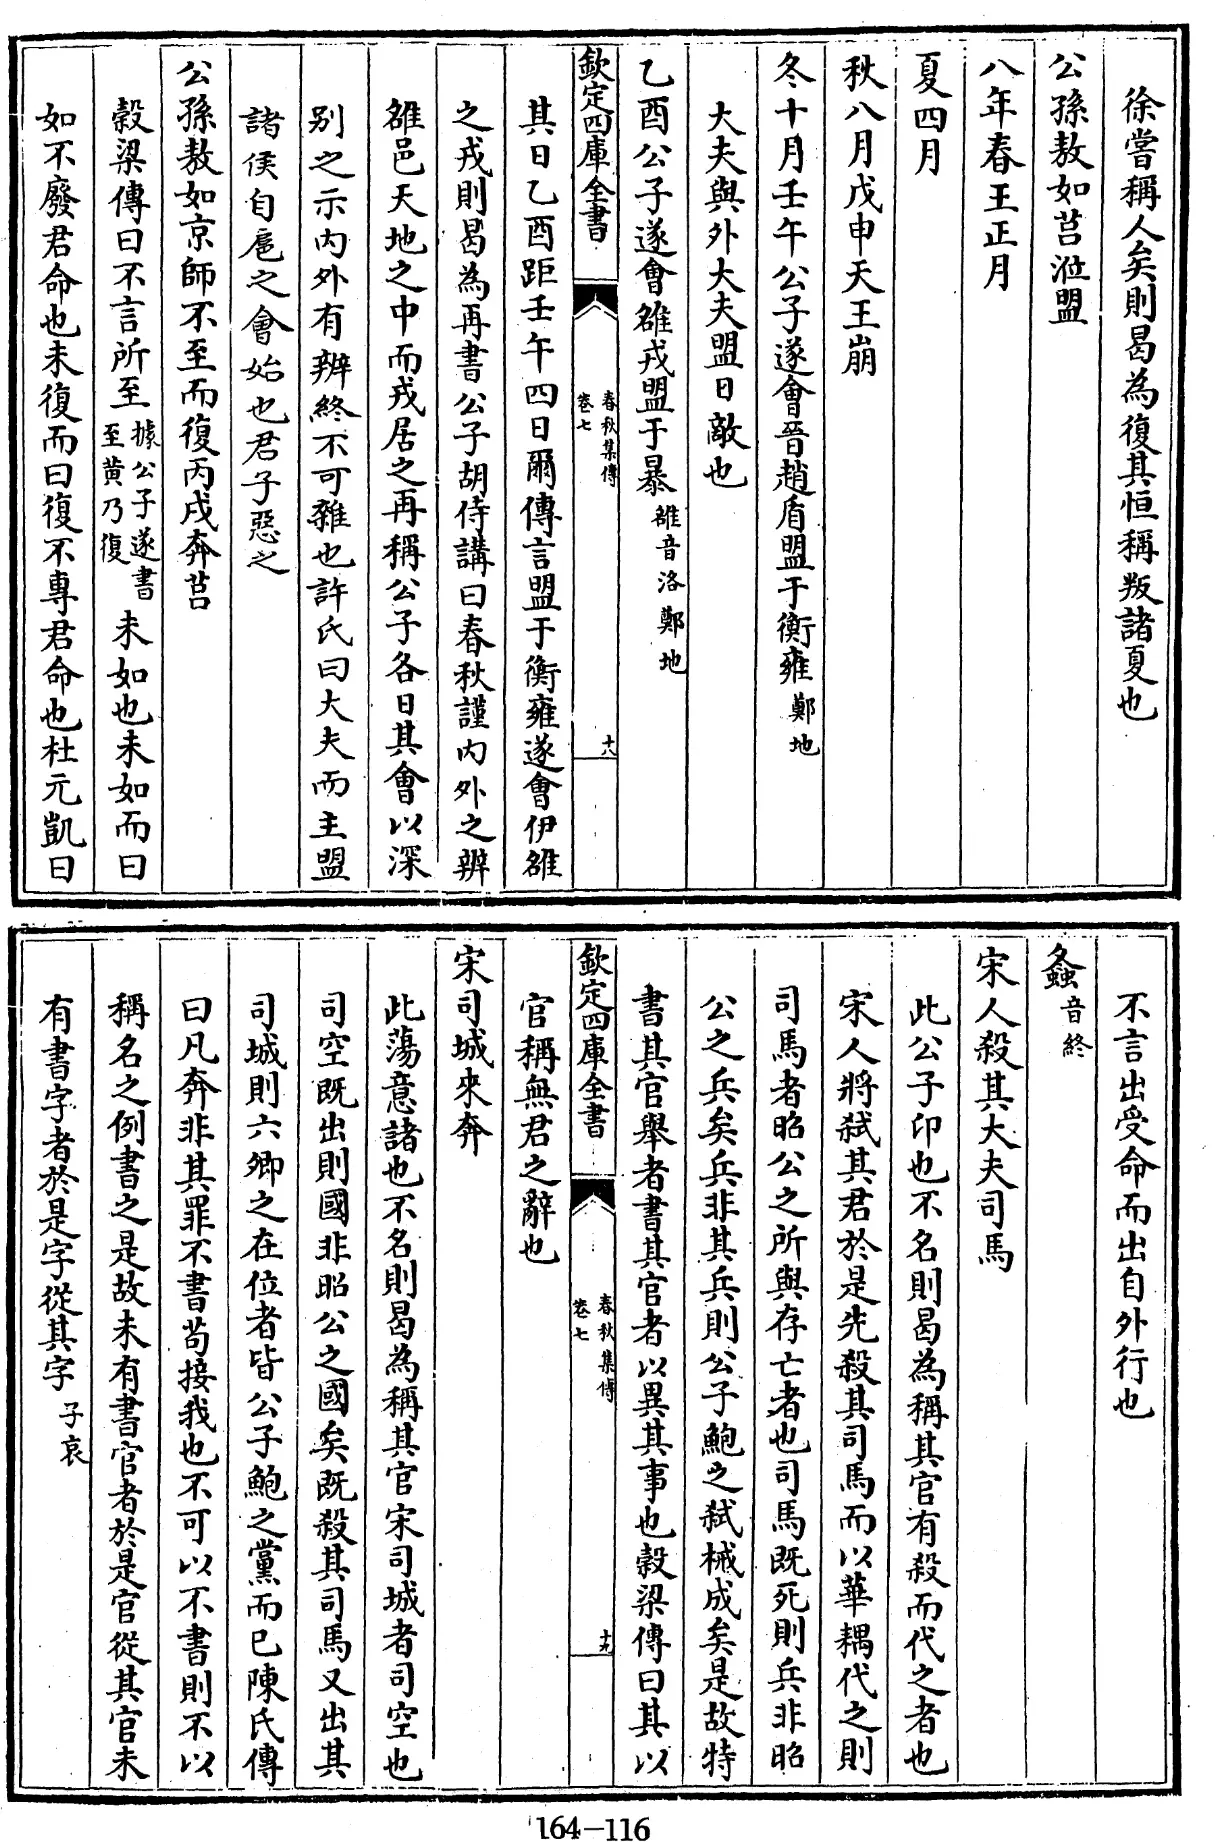 徐嘗稱人矣則曷為復其恒稱叛諸夏也
公孫敖如莒涖盟
八年春王正月
夏四月
秋八月戊申天王崩
冬十月壬午公子遂會晉趙盾盟于衡雍鄭地
大夫與外大夫盟日敵也
乙酉公子遂會雒戎盟于暴雒音洛鄭地
欽定四庫全書
春秋集傳
卷七
十八
其日乙酉距壬午四日爾傳言盟于衡雍遂會伊雒
之戎則曷為再書公子胡侍講曰春秋謹内外之辨
雒邑天地之中而戎居之再稱公子各日其會以深
别之示内外有辨終不可雜也許氏曰大夫而主盟
諸侯自扈之會始也君子惡之
公孫敖如京師不至而復丙戌奔莒
穀梁傳曰不言所至據公子遂書至黄乃復未如也未如而曰
如不廢君命也未復而曰復不專君命也杜元凱曰
不言出受命而出自外行也
螽音終
宋人殺其大夫司馬
此公子卬也不名則曷為稱其官有殺而代之者也
宋人將弑其君於是先殺其司馬而以華耦代之則
司馬者昭公之所與存亡者也司馬既死則兵非昭
公之兵矣兵非其兵則公子鮑之弑械成矣是故特
書其官舉者書其官者以異其事也穀梁傳曰其以
欽定四庫全書
春秋集傳
卷七
十九
官稱無君之辭也
宋司城來奔
此蕩意諸也不名則曷為稱其官宋司城者司空也
司空既出則國非昭公之國矣既殺其司馬又出其
司城則六卿之在位者皆公子鮑之黨而已陳氏傳
曰凡奔非其罪不書苟接我也不可以不書則不以
稱名之例書之是故未有書官者於是官從其官未
有書字者於是字從其字子哀
164-116